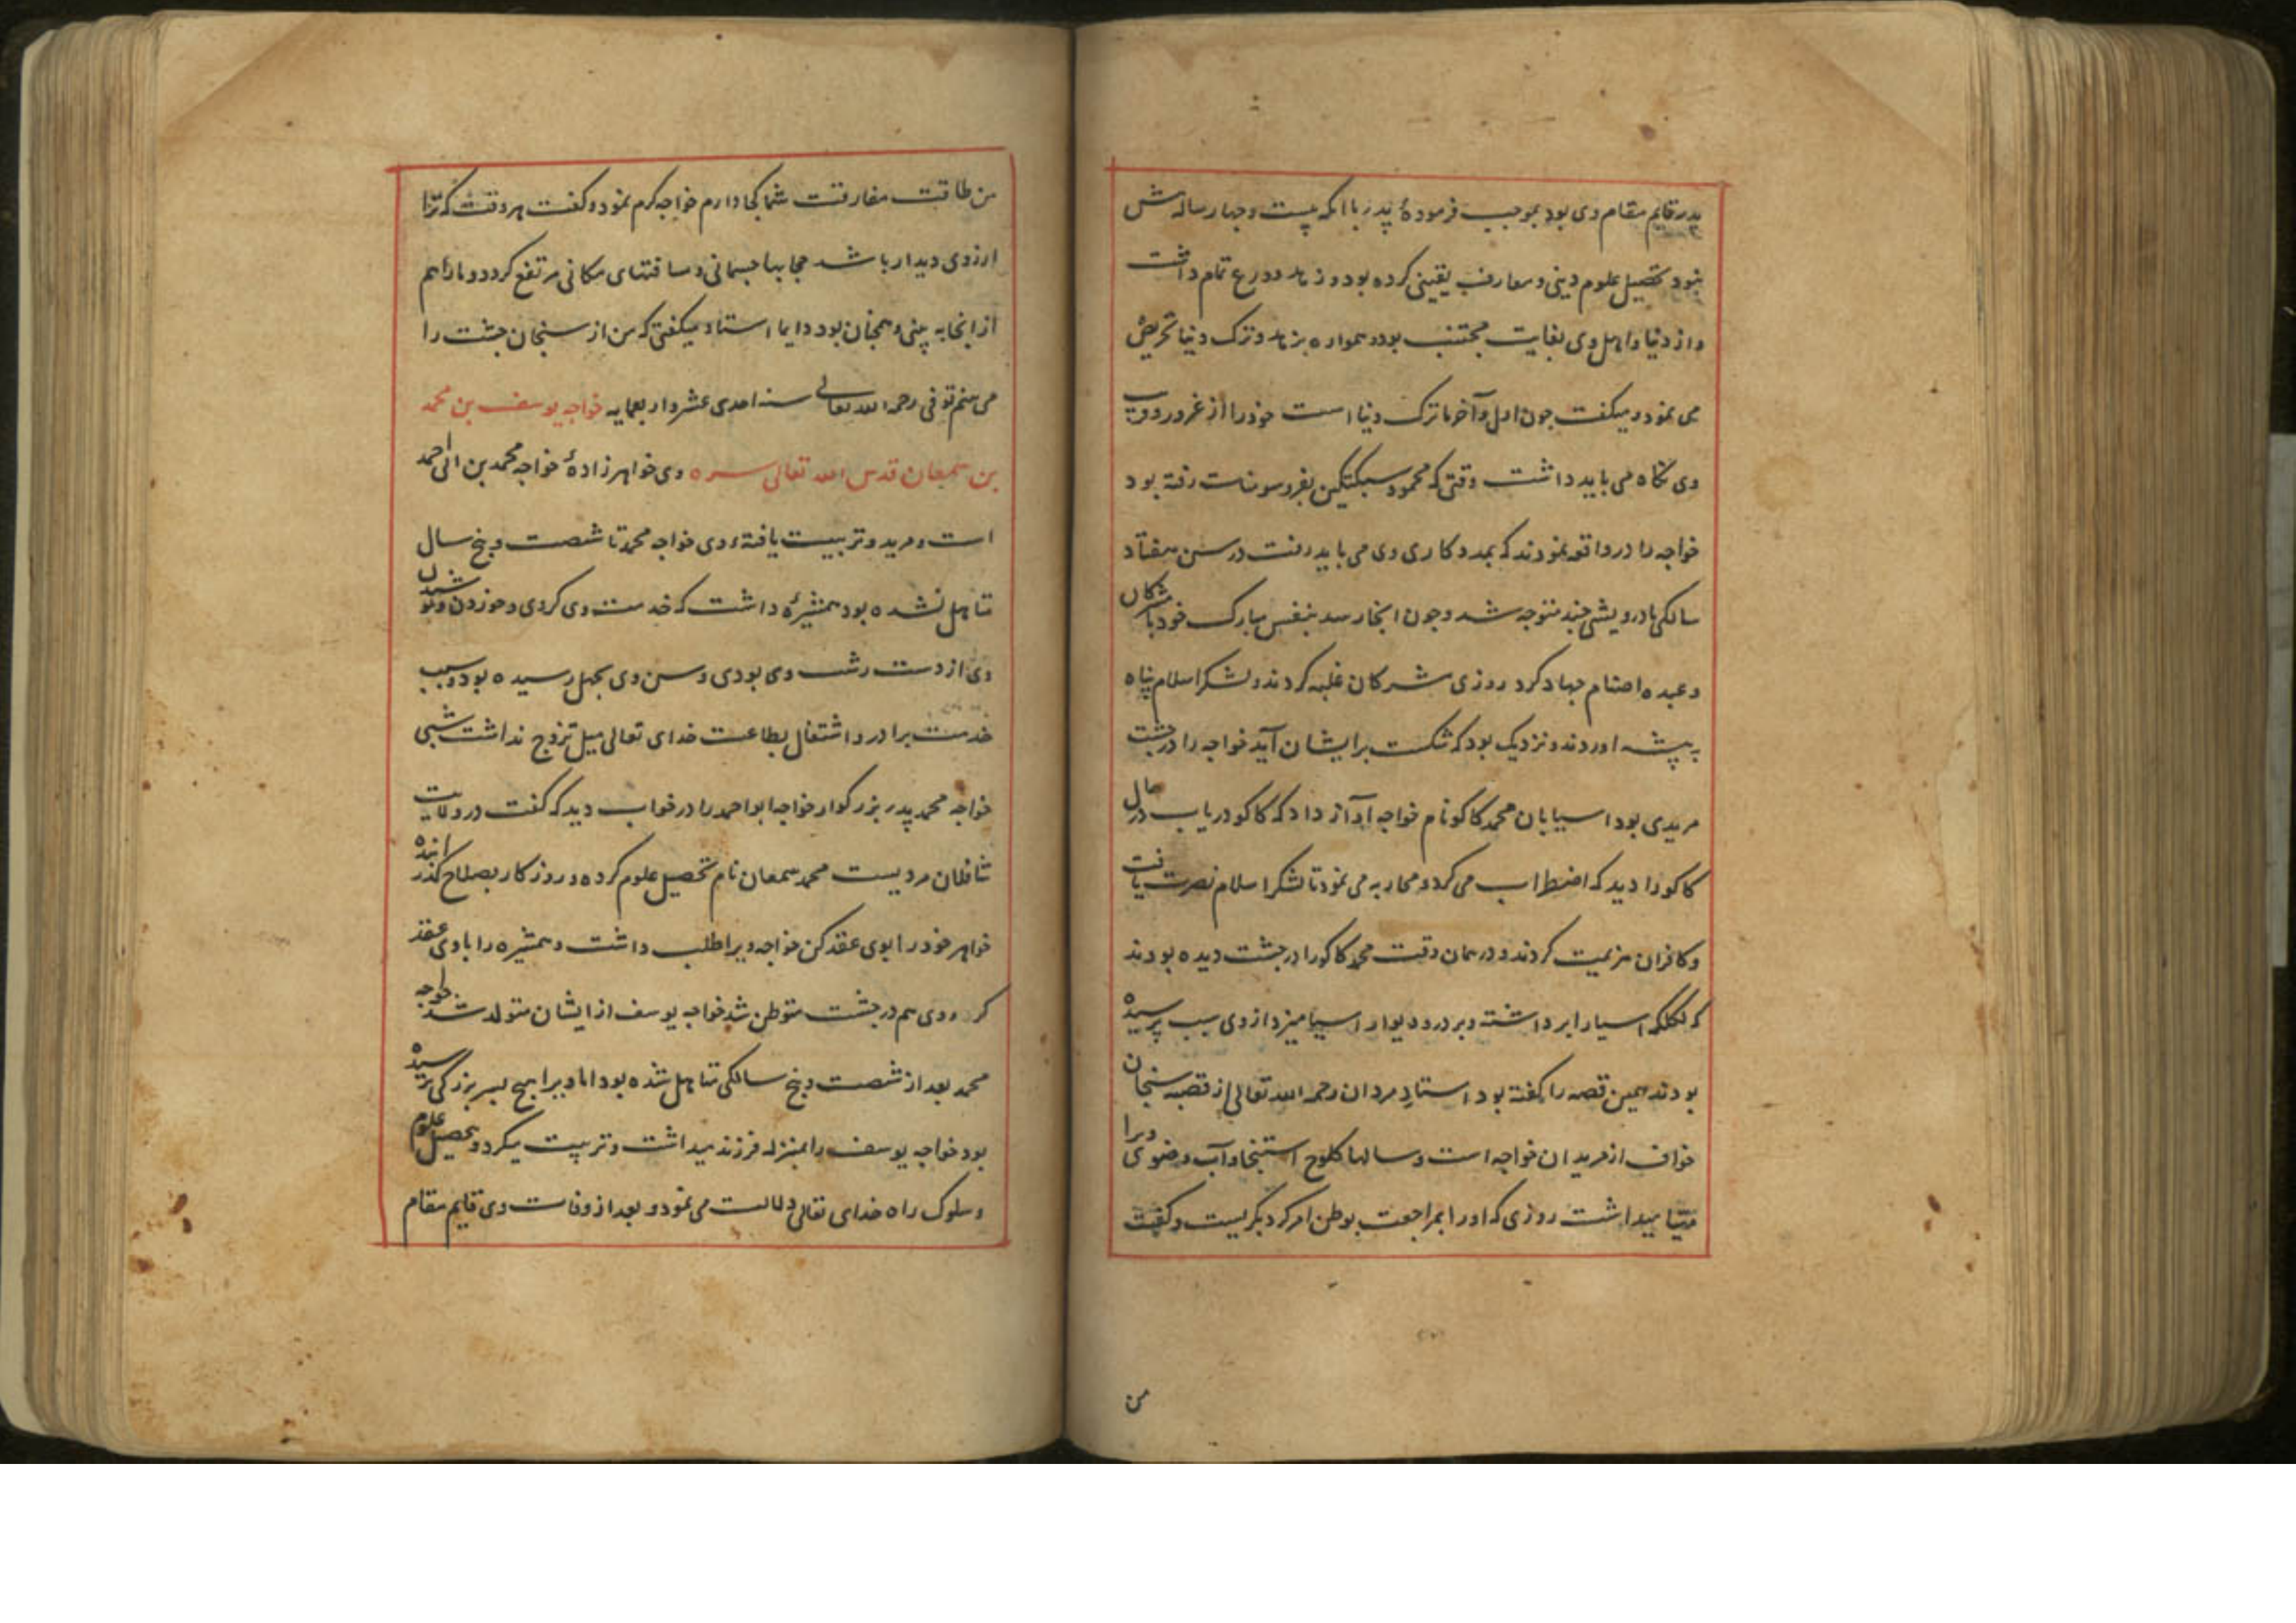 پدر قایم مقام وی بود بموجب فرمودهٔ پدر با انکه بیست و چهار ساله ش
نبود تحصیل علوم دینی و معارف یقینی کرده بود و زهد و ورع تمام داشت
و از دنیا و اهل وی بغایت مجتنب بود و همواره بزهد و ترک دنیا تحریض
می نمود و میکفت چون اول و آخر ما ترک دنیا است خود را از غرور و فریب
وی نکاه می باید داشت وقتی که محمود سبکتکین بغزو سومنات رفته بود
خواجه را در واقعه نمودند که بمددکاری وی می باید رفت در سن هفتاد
سالکی با درویشی چند متوجه شد و چون انجا رسد بنفس مبارک خود با مشرکان
و عبده اصنام جهاد کرد روزی مشرکان غلبه کردند و لشکر اسلام پناه
به پیشه اوردند و نزدیک بود که شکست برایشان آید خواجه را در چشت
مریدی بود اسیابان محمد کاکو نام خواجه آواز داد که کاکو دریاب در حال
کاکو را دید که اضطراب می کرد و محاربه می نمود تا لشکر اسلام نصرت یافت
و کافران هزیمت کردند و در همان وقت محمد کاکو را در چشت دیده بودند
که لکلکه اسیا را برداشته و بر در و دیوار اسیا میزد از وی سبب پرسیده
بودند همین قصه را کفته بود استاد مردان رحمه الله تعالی از قصبه سنجان
خواف از مریدان خواجه است و سالها کلوخ استنجا و آب وضوی ویرا
مهیا میداشت روزی که او را بمراجعت بوطن امر کرد بکریست و کفت
من
من طاقت مفارقت شما کجا دارم خواجه کرم نمود و کفت هر وقت که ترا
ارزوی دیدار باشد حجابها جسمانی و مسافتهای مکانی مرتفع کردد و مارا هم
از انجا به بینی و همچنان بود دایما استاد میکفتی که من از سنجان چشت را
می بینم توفی رحمه الله تعالی سنه احدی عشر و اربعمایه خواجه یوسف بن محمد
بن سمعان قدس الله تعالی سره وی خواهرزادهٔ خواجه محمد بن ابی احمد
است و مرید و تربیت یافتهٔ وی خواجه محمد تا شصت و پنج سال
متاهل نشده بود همشیرهٔ داشت که خدمت وی کردی و خوردن و پوشیدن
وی از دست رشت وی بودی و سن وی بچهل رسیده بود و بسبب
خدمت برادر و اشتغال بطاعت خدای تعالی میل تزوج نداشت شبی
خواجه محمد پدر بزرکوار خواجه ابو احمد را در خواب دید که کفت در ولایت
شاقلان مردیست محمد سمعان نام تحصیل علوم کرده و روزکار بصلاح کذرانیده
خواهر خود را بوی عقد کن خواجه ویرا طلب داشت و همشیره را با وی عقد
کرد و وی هم در چشت متوطن شد خواجه یوسف از ایشان متولد شد خواجه
محمد بعد از شصت و پنج سالکی متاهل شده بود اما ویرا هیچ پسر بزرکی نرسیده
بود خواجه یوسف را بمنزله فرزند میداشت و تربیت میکرد و بتحصیل علوم
و سلوک راه خدای تعالی دلالت می نمود و بعد از وفات وی قایم مقام